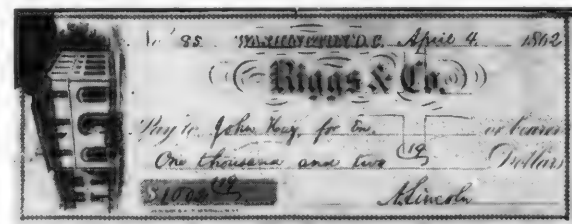 No. 85 WASHINGTON, D.C. April 4 1862
Riggs & Co.
Pay to John Hay, for Em. or bearer
One thousand and two 19 Dollars
$1002 19 A. Lincoln